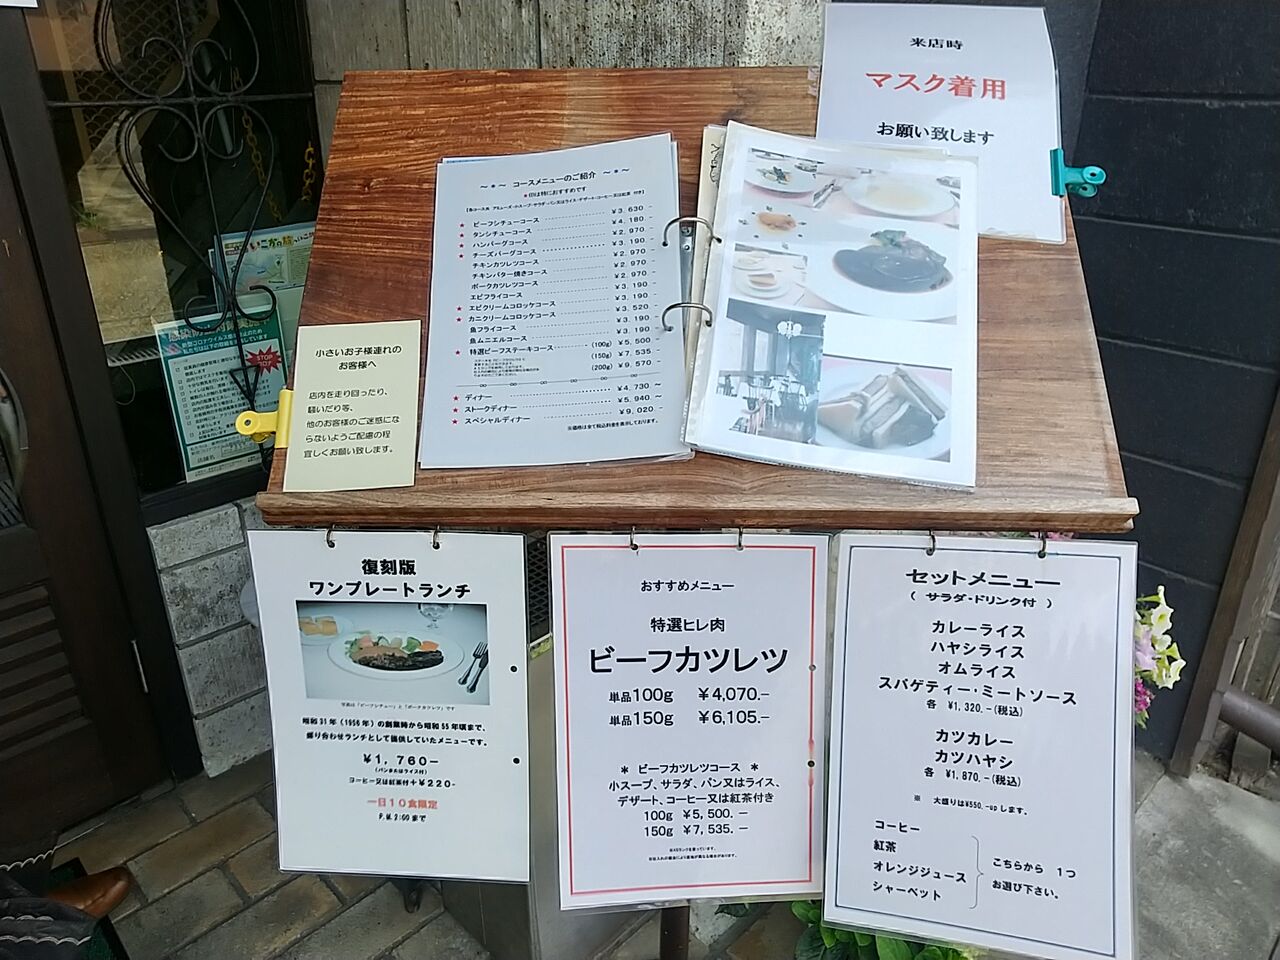 来店時
マスク着用
お願い致します
～＊～ コースメニューのご紹介 ～＊～
★印は特におすすめです
【各コース共 アミューズ・小スープ・サラダ・パン又はライス・デザート・コーヒー又は紅茶 付き】
★ ビーフシチューコース ¥3,630.-
★ タンシチューコース ¥4,180.-
★ ハンバーグコース ¥2,970.-
★ チーズバーグコース ¥3,190.-
チキンカツレツコース ¥2,970.-
チキンバター焼きコース ¥2,970.-
ポークカツレツコース ¥2,970.-
エビフライコース ¥3,190.-
★ エビクリームコロッケコース ¥3,190.-
★ カニクリームコロッケコース ¥3,520.-
魚フライコース ¥3,190.-
魚ムニエルコース ¥3,190.-
★ 特選ビーフステーキコース (100g) ¥5,500.-
(150g) ¥7,535.-
(200g) ¥9,570.-
★ ディナー ¥4,730～
★ ストークディナー ¥5,940～
★ スペシャルディナー ¥9,020.-
※価格は全て税込料金を表示しております。
小さいお子様連れの
お客様へ
店内を走り回ったり、
騒いだり等、
他のお客様のご迷惑にな
らないようご配慮の程
宜しくお願い致します。
STOP
コロナ
復刻版
ワンプレートランチ
写真は「ビーフシチュー」と「ポークカツレツ」です
昭和31年（1956年）の創業時から昭和55年頃まで、
盛り合わせランチとして提供していたメニューです。
¥1,760－
(パンまたはライス付)
コーヒー又は紅茶付＋¥220-
一日10食限定
P.M.2:00まで
おすすめメニュー
特選ヒレ肉
ビーフカツレツ
単品100g ¥4,070.-
単品150g ¥6,105.-
＊ ビーフカツレツコース ＊
小スープ、サラダ、パン又はライス、
デザート、コーヒー又は紅茶付き
100g ¥5,500.-
150g ¥7,535.-
セットメニュー
( サラダ・ドリンク付 )
カレーライス
ハヤシライス
オムライス
スパゲティー・ミートソース
各 ¥1,320.-(税込)
カツカレー
カツハヤシ
各 ¥1,870.-(税込)
※ 大盛りは¥550.-up します。
コーヒー
紅茶
オレンジジュース
シャーベット
こちらから 1つ
お選び下さい。